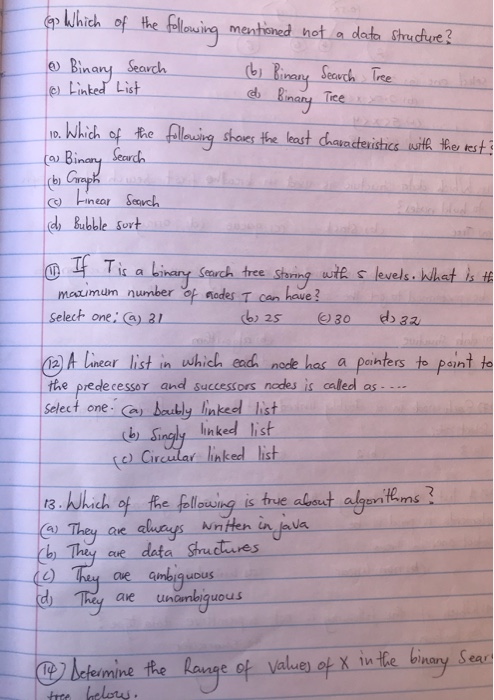 (9) Which of the following mentioned not a data structure?
(a) Binary Search (b) Binary Search Tree
(c) Linked List (d) Binary Tree
10. Which of the following shares the least characteristics with the rest?
(a) Binary Search
(b) Graph
(c) Linear Search
(d) Bubble sort
(11) If T is a binary search tree storing with 5 levels. What is the
maximum number of nodes T can have?
select one: (a) 31 (b) 25 (c) 30 (d) 32
(12) A linear list in which each node has a pointers to point to
the predecessor and successors nodes is called as ----
select one: (a) Doubly linked list
(b) Singly linked list
(c) Circular linked list
13. Which of the following is true about algorithms?
(a) They are always written in java
(b) They are data structures
(c) They are ambiguous
(d) They are unambiguous
(14) Determine the Range of values of X in the binary Sear
tree below.